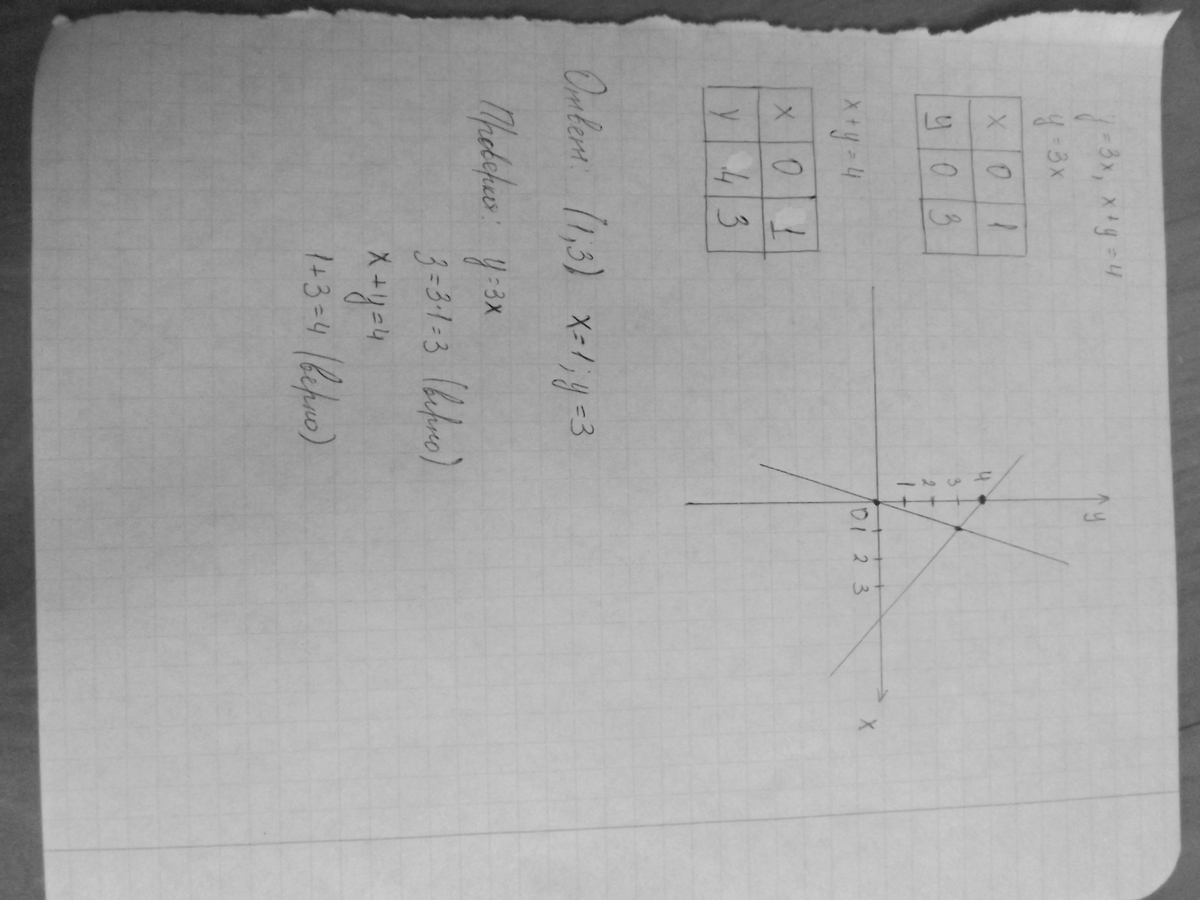 y=3x, x+y=4
y=3x
x 0 1
y 0 3
x+y=4
x 0 1
y 4 3
y
4
3
2
1
0 1 2 3
x
Ответ: (1;3) x=1; y=3
Проверка: y=3x
3=3·1=3 (верно)
x+y=4
1+3=4 (верно)